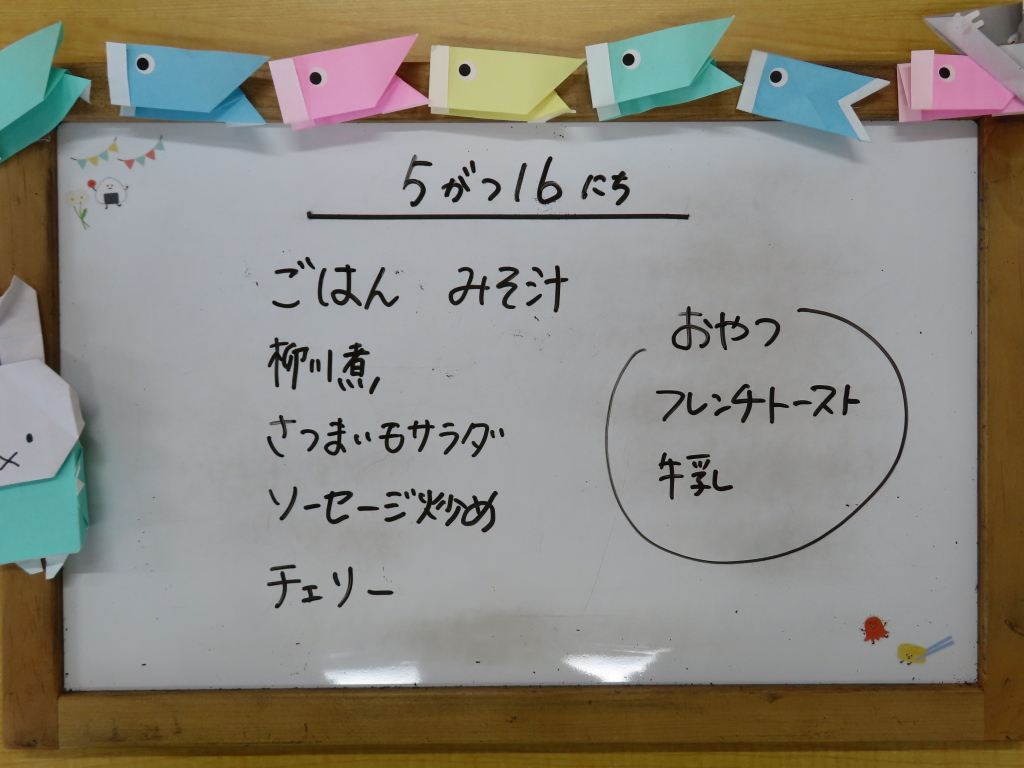 5がつ16にち
ごはん みそ汁
柳川煮
さつまいもサラダ
ソーセージ炒め
チェリー
おやつ
フレンチトースト
牛乳